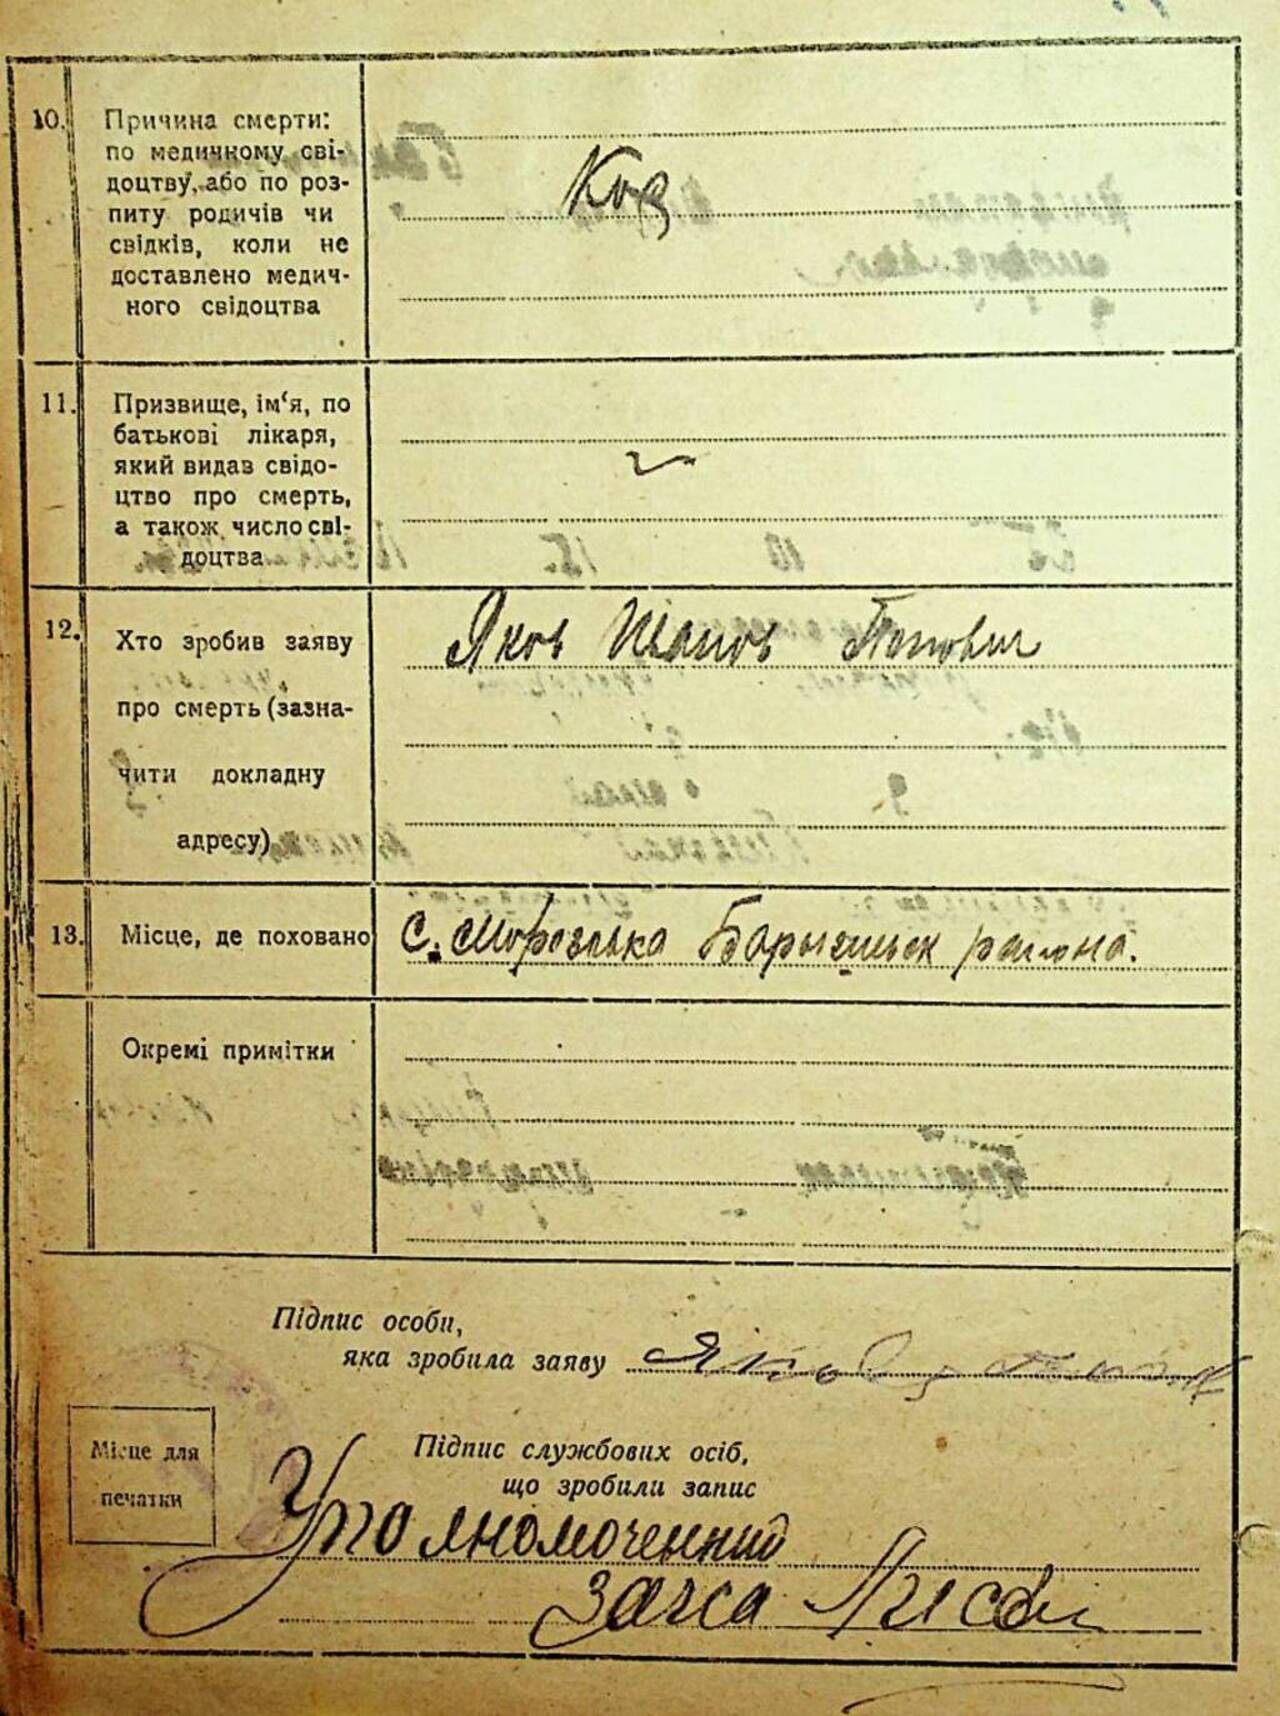 10. Причина смерти:
по медичному сві-
доцтву, або по роз-
питу родичів чи
свідків, коли не
доставлено медич-
ного свідоцтва
Кор
11. Призвище, ім‘я, по
батькові лікаря,
який видав свідо-
цтво про смерть,
а також число сві-
доцтва
12. Хто зробив заяву
про смерть (зазна-
чити докладну
адресу)
Яков Иванов Попович
13. Місце, де поховано
С. Морозовка Барышевск района.
Окремі примітки
Підпис особи,
яка зробила заяву
Місце для
печатки
Підпис службових осіб,
що зробили запис
Уполномоченный
загса